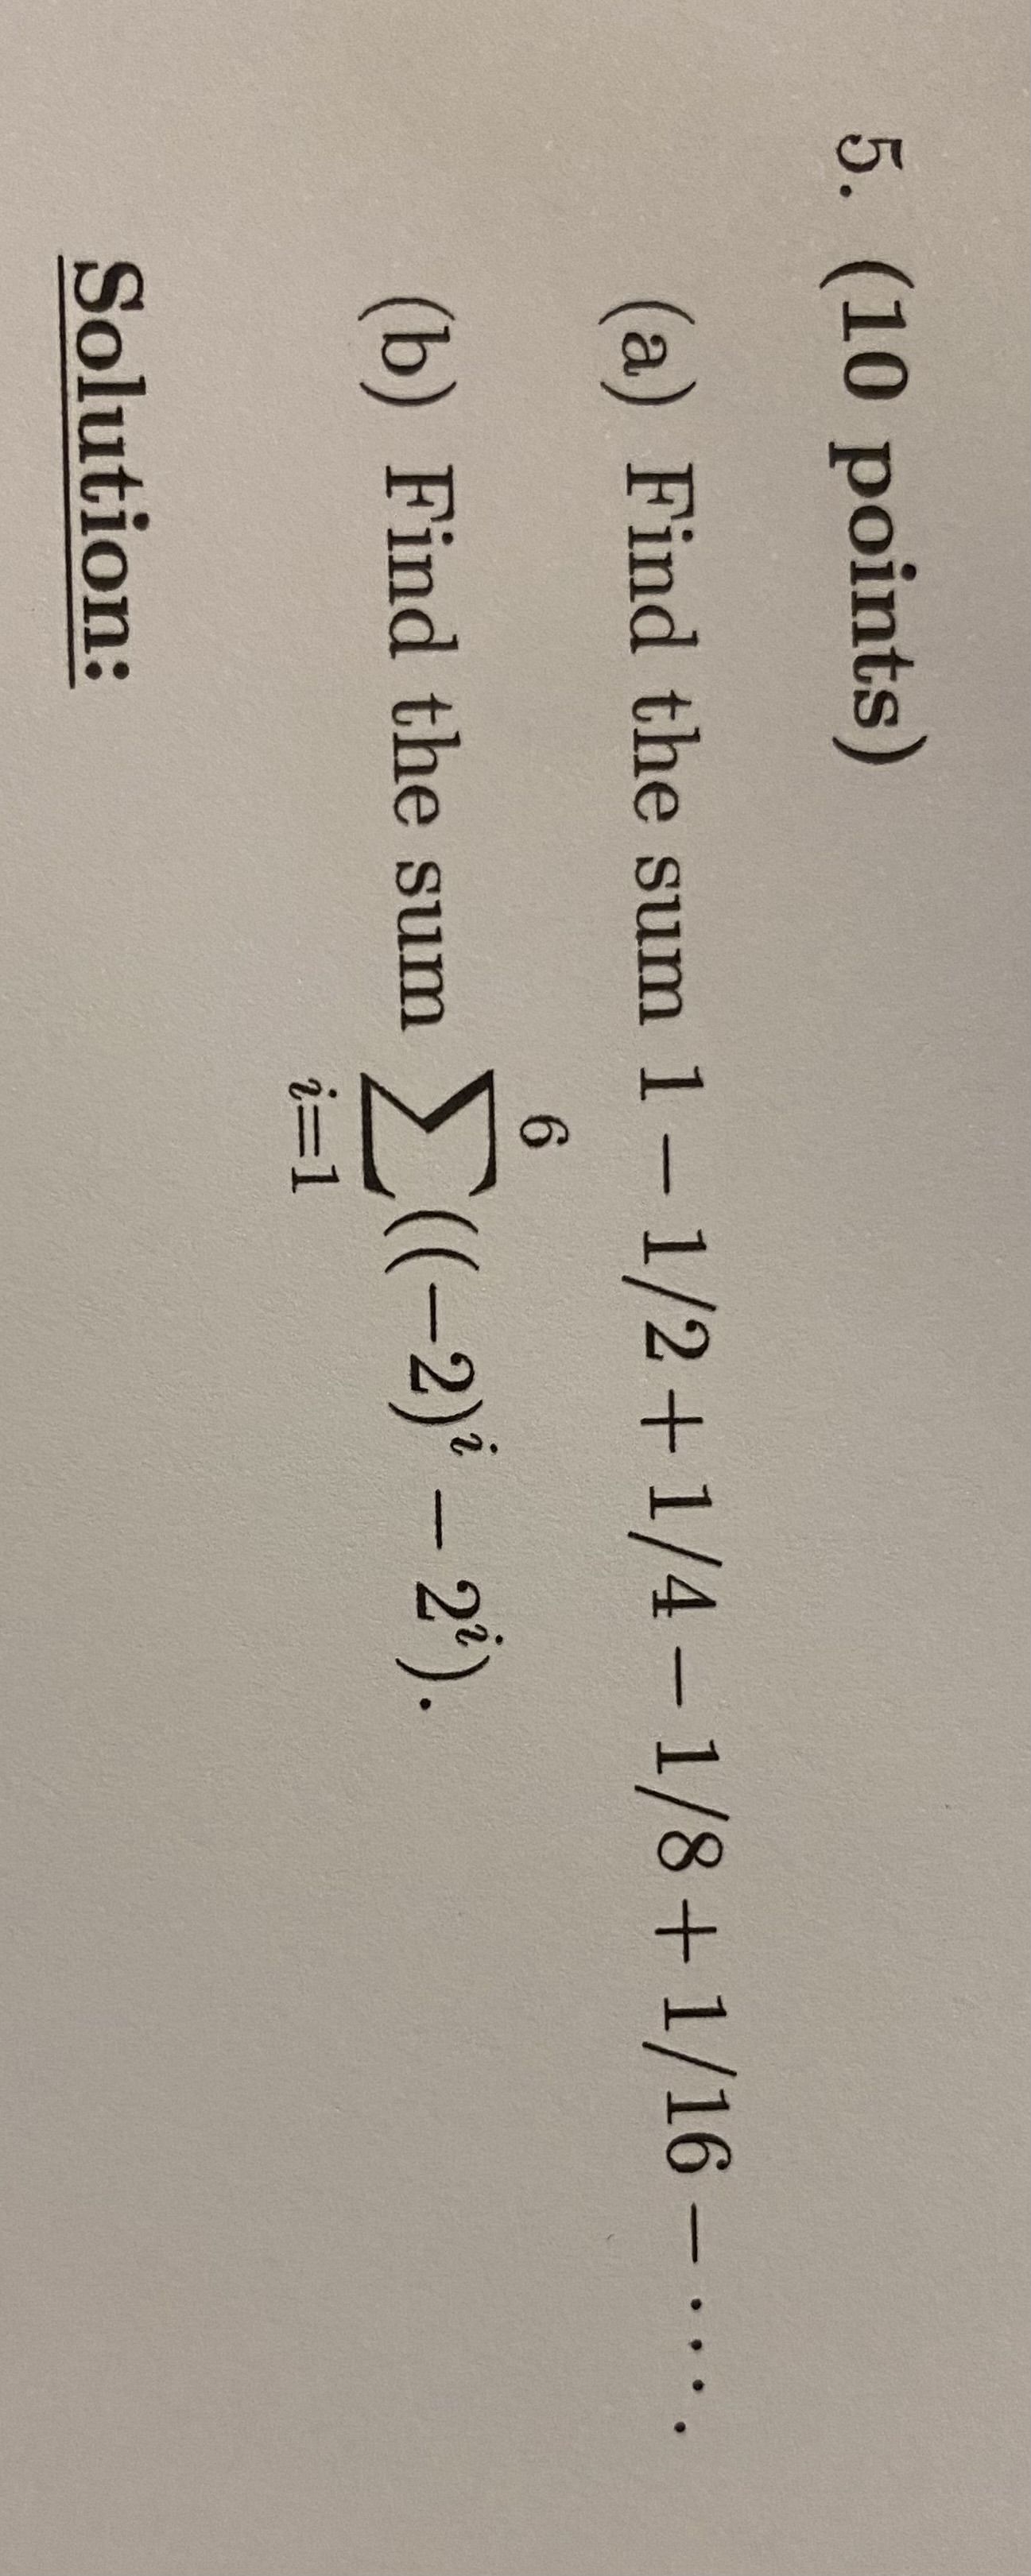 5. (10 points)
(a) Find the sum 1 − 1/2 + 1/4 − 1/8 + 1/16 − ⋯.
(b) Find the sum $\sum_{i=1}^{6} ((-2)^i - 2^i)$.
Solution: